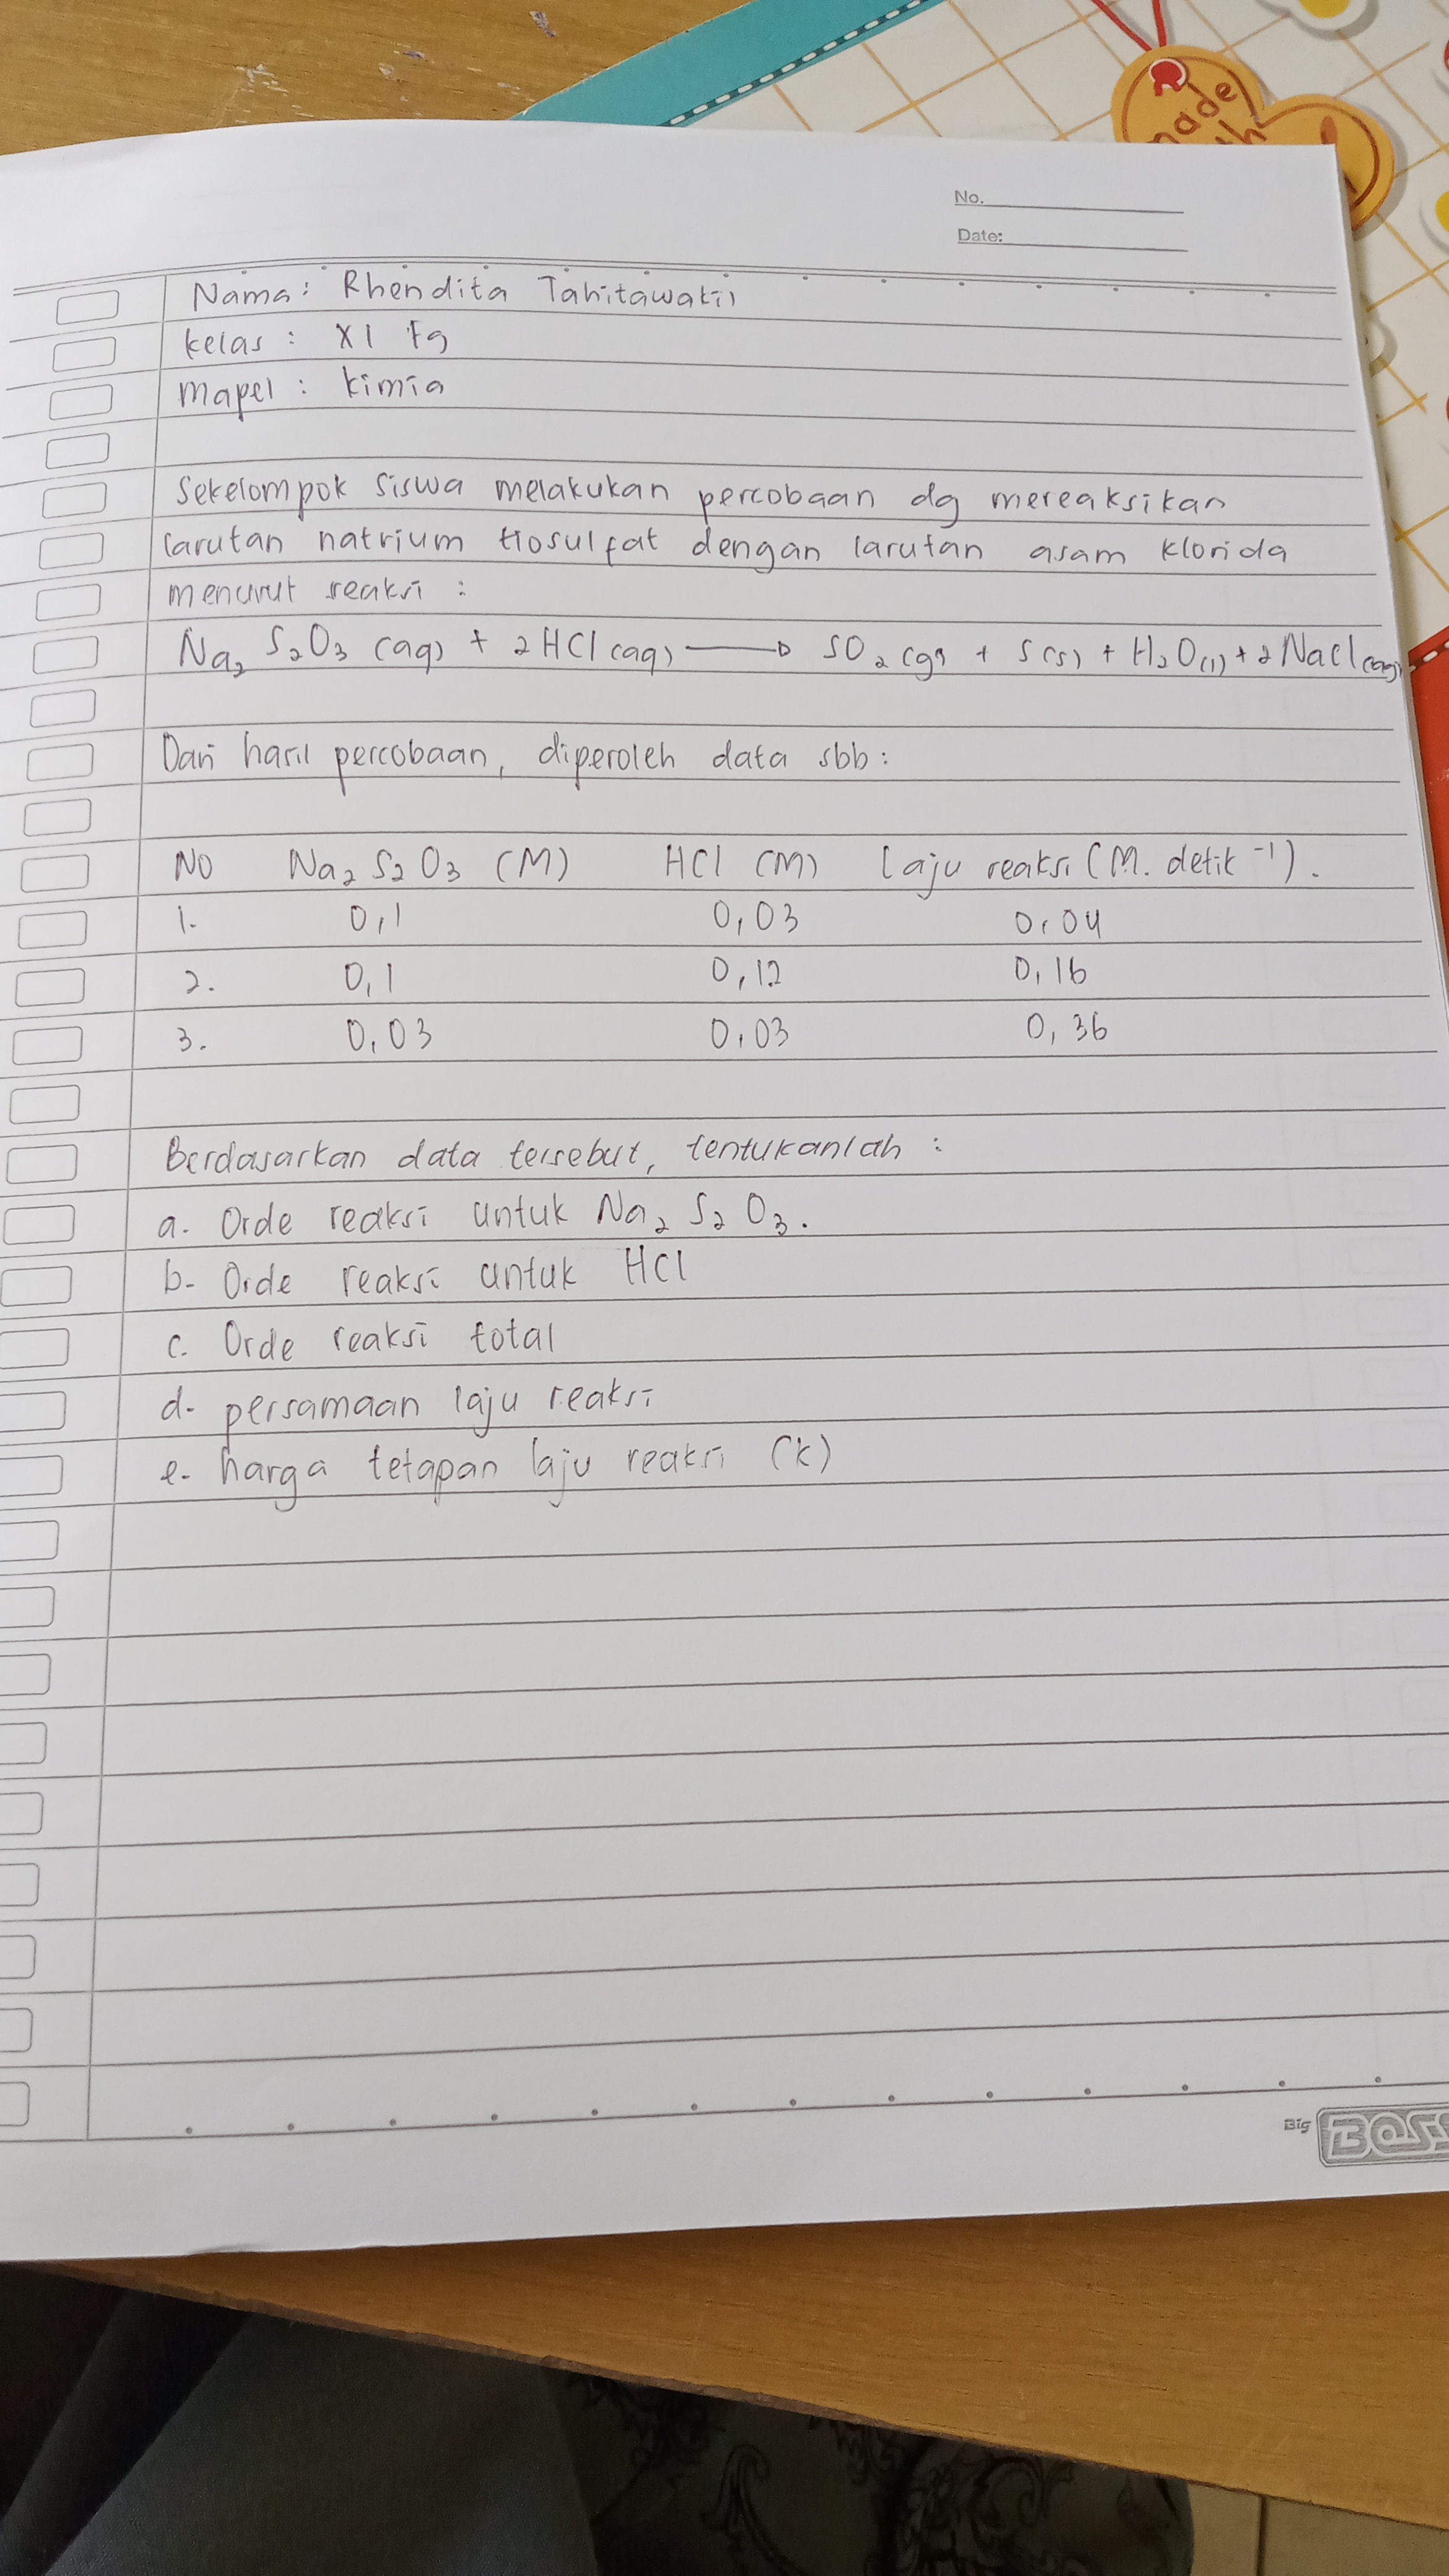 made
No.
Date:
Nama : Rhendita Tahitawakil
kelas : XI F9
mapel : kimia
Sekelompok siswa melakukan percobaan dg mereaksikan
larutan natrium tiosulfat dengan larutan asam klorida
menurut reaksi :
Na₂ S₂O₃ (aq) + 2 HCl (aq) → SO₂ (g) + S(s) + H₂O(l) + 2 NaCl (aq)
Dari hasil percobaan, diperoleh data sbb :
NO Na₂ S₂ O₃ (M) HCl (M) Laju reaksi (M. detik ⁻¹).
1. 0,1 0,03 0,04
2. 0,1 0,12 0,16
3. 0,03 0,03 0,36
Berdasarkan data tersebut, tentukanlah :
a. Orde reaksi untuk Na₂ S₂ O₃.
b. Orde reaksi untuk HCl
c. Orde reaksi total
d. persamaan laju reaksi
e. harga tetapan laju reaksi (k)
Big